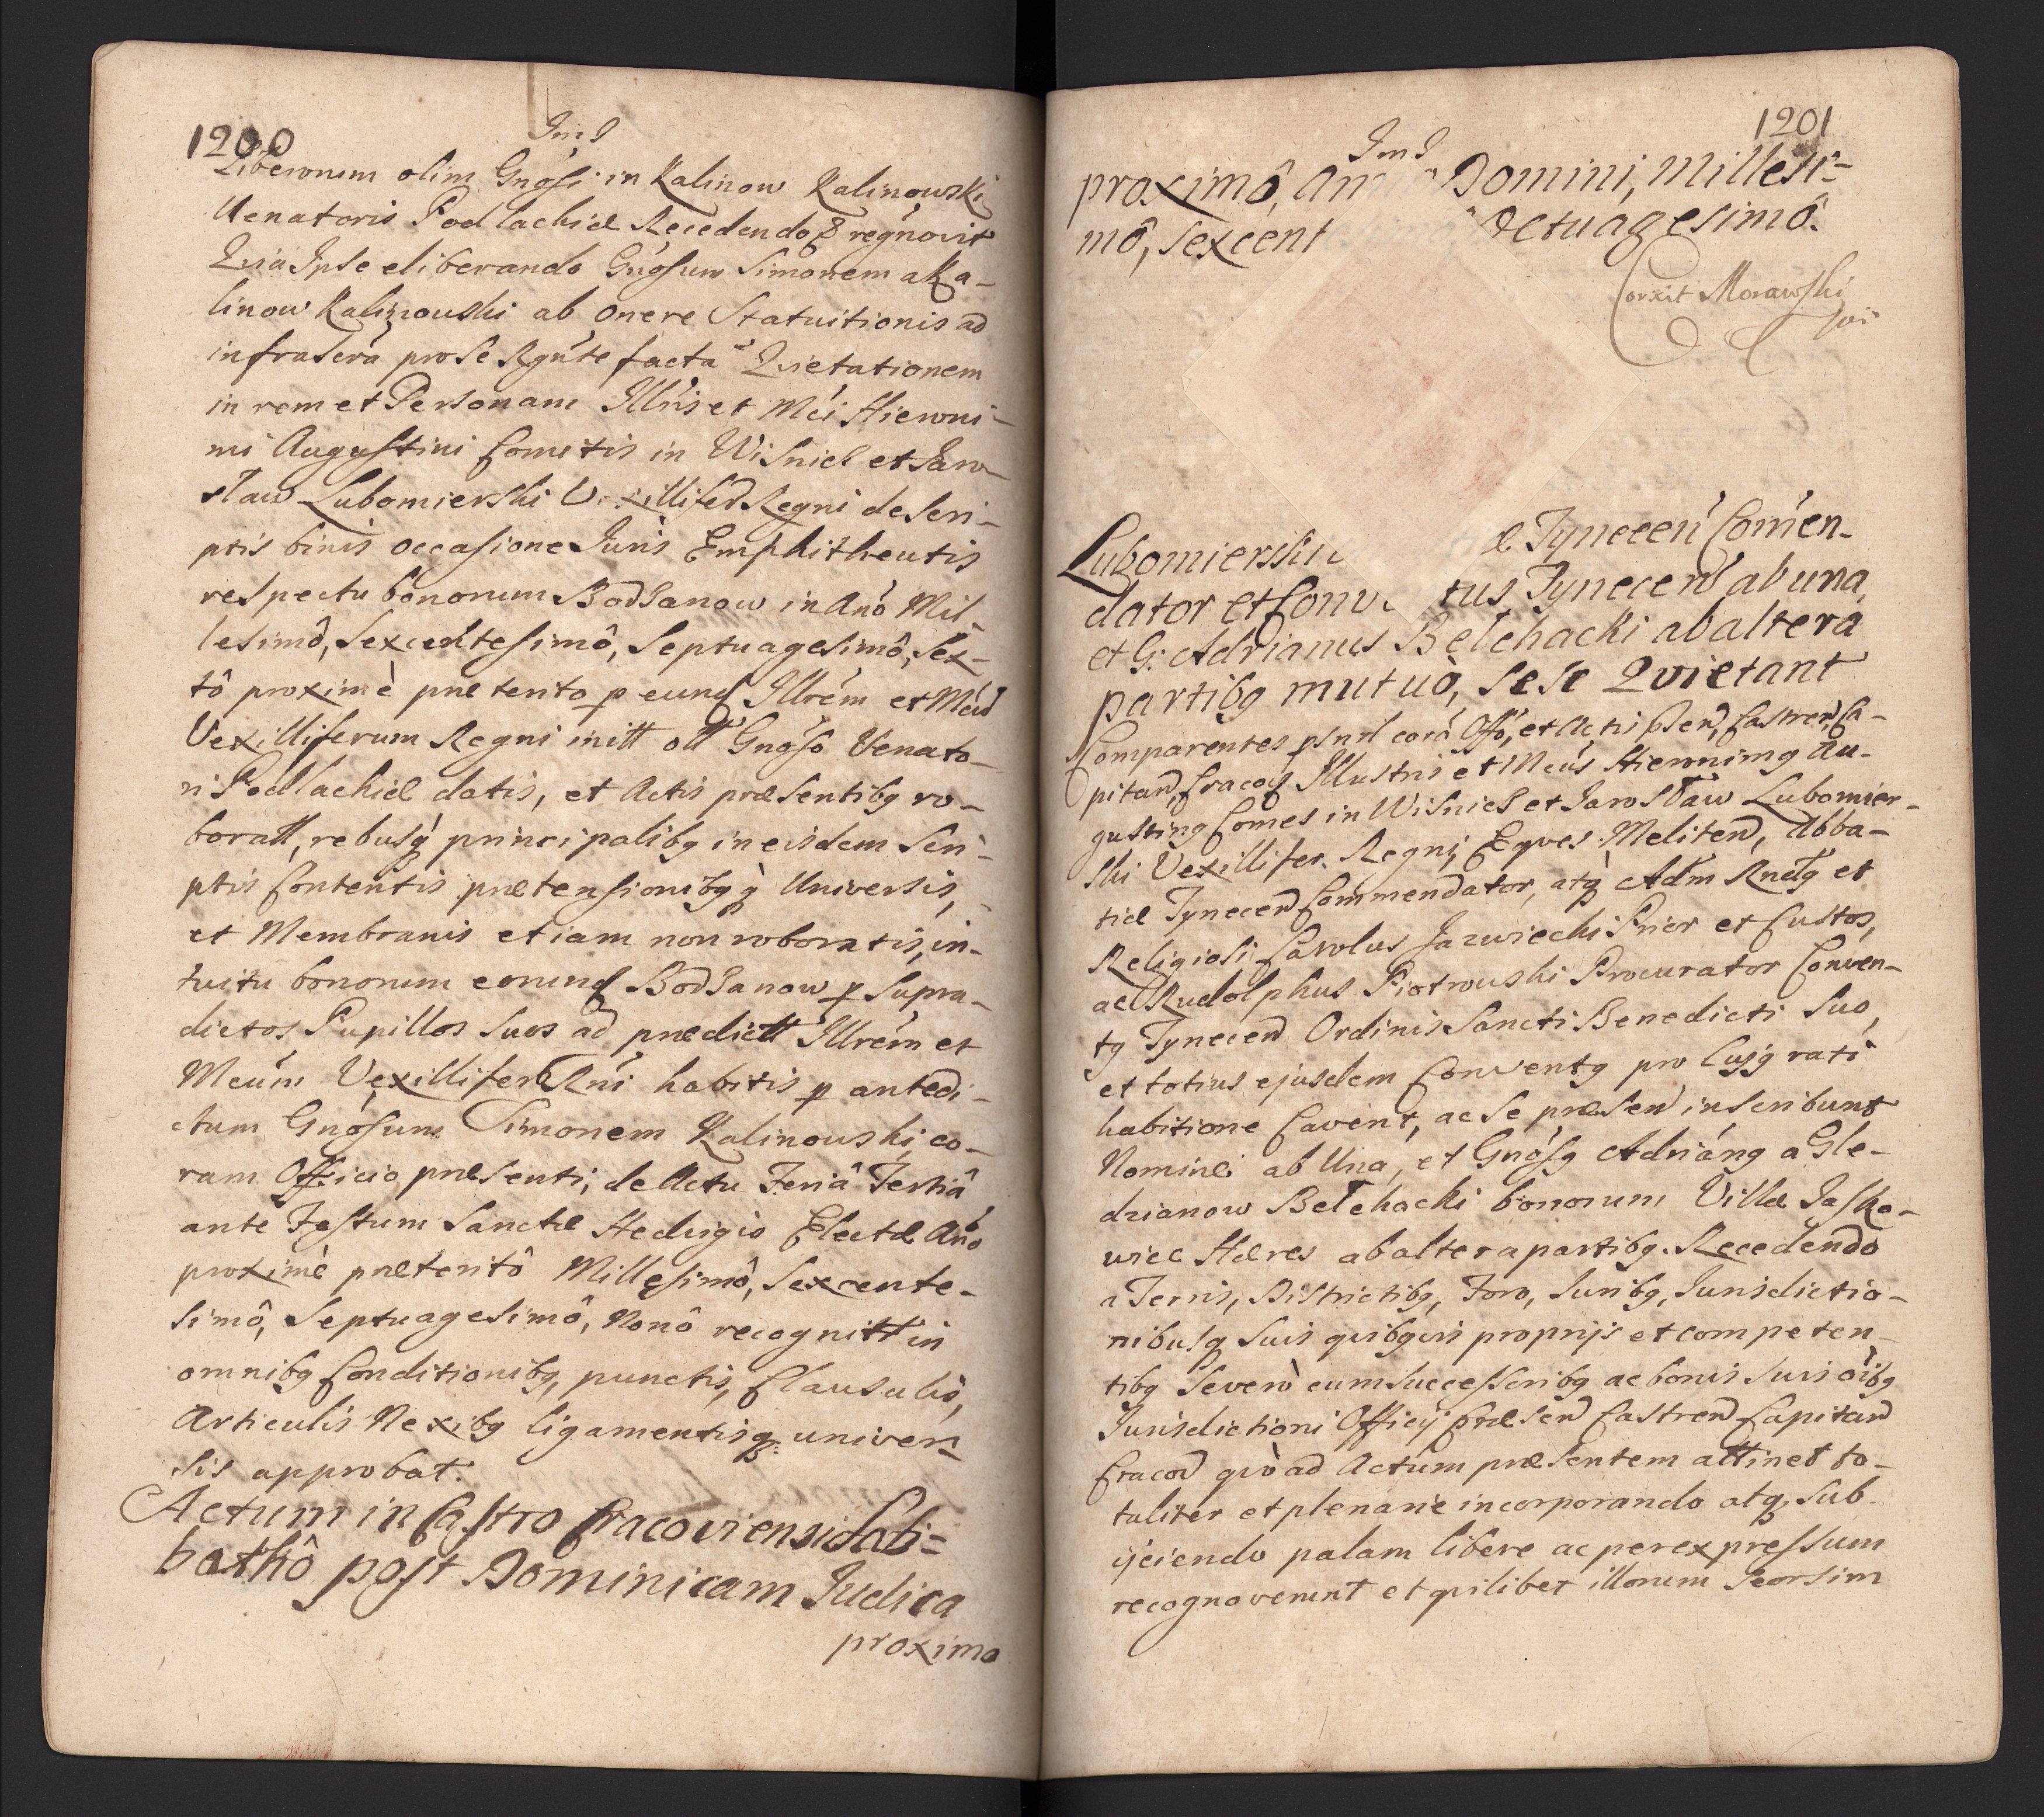 1200
Liberorum olim Gnósi in Kalinow Kalinowski
Venatoris Podlachiæ Recedendo & regnovit
Quia Ipse eliberando Gnósum Simonem a Ka-
linow Kalinowski ab onere Statuitionis ad
infrascrá pro se Rgnte factã Quietationem
in rem et Personam Illris et Mci Hieroni-
mi Augustini Comitis in Wisnicz et Jaro-
slaw Lubomierski Vexilliferi Regni de scri-
ptis binis occasione Juris Emphitheutis
respectu bonorum Bodzanow in Anó Mil-
lesimô, Sexcentesimô, Septuagesimô, Sex-
tô proximè præterito p eund Illrém et Mcúm
Vexilliferum Regni initt ott Gnóso Venato-
ri Podlachiæ datis, et Actis præsentibg ro-
boratt, rebusq principalibg in eisdem scri-
ptis Contentis prætensionibgq Universis,
et Membranis etiam non roboratis, in-
tuitu bonorum eorund Bodzanow p supra-
dictos Pupillos suos ad prædictt Illrém et
Mcúm Vexillifer Rni habitis p antedi-
ctum Gnósum Simonem Kalinowski, co-
ram Officio præsenti, de Actu Feriâ Tertiâ
ante Festum Sanctæ Hedvigis Electæ Anó
proximè præteritô Millesimô, Sexcente-
simô, Septuagesimô, Nonô recognitt in
omnibg Conditionibg, punctis, Clausulis,
Articulis Nexibg ligamentisq univer-
sis approbat.
Actum in Castro Cracoviensi Sab-
bathô post Dominicam Judica
proxima
1201
proximô, An Domini, Millesi=
mô, Sexcent ctuagesimô.
Corxit Morawski
Lubomierski æ Tynecen Comén-
dator et Conv tus Tynecen ab una,
et G: Adrianus Bełchacki ab altera
partibg mutuò, sese Quietant
Comparentes psnrl corá Offó, et Actis psen, Castren, Ca-
pitan, Cracov Illustris et Mcús Hieronimg Au-
gusting Comes in Wisnicz et Jarosław Lubomier-
ski Vexillifer. Regni, Eques Meliten, Abba-
tiæ Tynecen Commendator, atq Adm Rndg et
Religiosi Carolus Jazwiecki Prior et Custos,
ac Rudolphus Piotrowski Procurator Conven-
tg Tynecen Ordinis Sancti Benedicti suo,
et totius ejusdem Conventg pro cujg rati
habitione Cavent, ac se præsen inscribunt
Nomine ab Una, et Gnósg Adriáng a Gle-
dzianow Bełchacki bonorum Villæ Jasko-
wice Hæres ab altera partibg. Recedendo
a Terris, Districtibg, Foro, Juribg, Jurisdictio-
nibusq suis quibgvis proprijs et competen-
tibg severò cum successoribg ac bonis suis óibg
Jurisdictioni Officij Præsen Castren Capitan
Cracov quò ad Actum præsentem attinet to-
taliter et plenarie incorporando atq sub-
ijciendo palam libere ac per expressum
recognoverunt et quilibet illorum seorsim